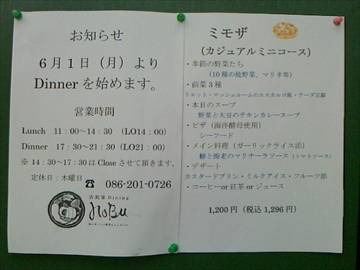 お知らせ
6月1日（月）より
Dinnerを始めます。
営業時間
Lunch 11：00～14：30 （LO14：00）
Dinner 17：30～21：30（LO21：00）
※ 14：30～17：30はCloseさせて頂きます。
定休日：木曜日
☎ 086-201-0726
Dining
NOBU
ミモザ
（カジュアルミニコース）
・季節の野菜たち
（10種の焼野菜、マリネ等）
・前菜3種
リエット・マッシュルームのエスカルゴ風・チーズ豆腐
・本日のスープ
野菜と大豆のチキンカレースープ
・ピザ（海洋酵母使用）
シーフード
・メイン料理（ガーリックライス添）
鯛と海老のマリナーラソース（トマトソース）
・デザート
カスタードプリン・ミルクアイス・フルーツ添
・コーヒーor紅茶orジュース
1,200円（税込1,296円）